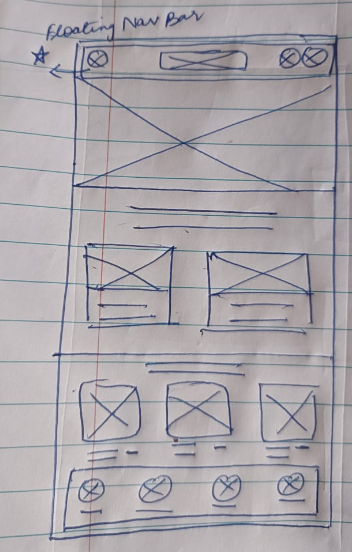 Floating Nav Bar